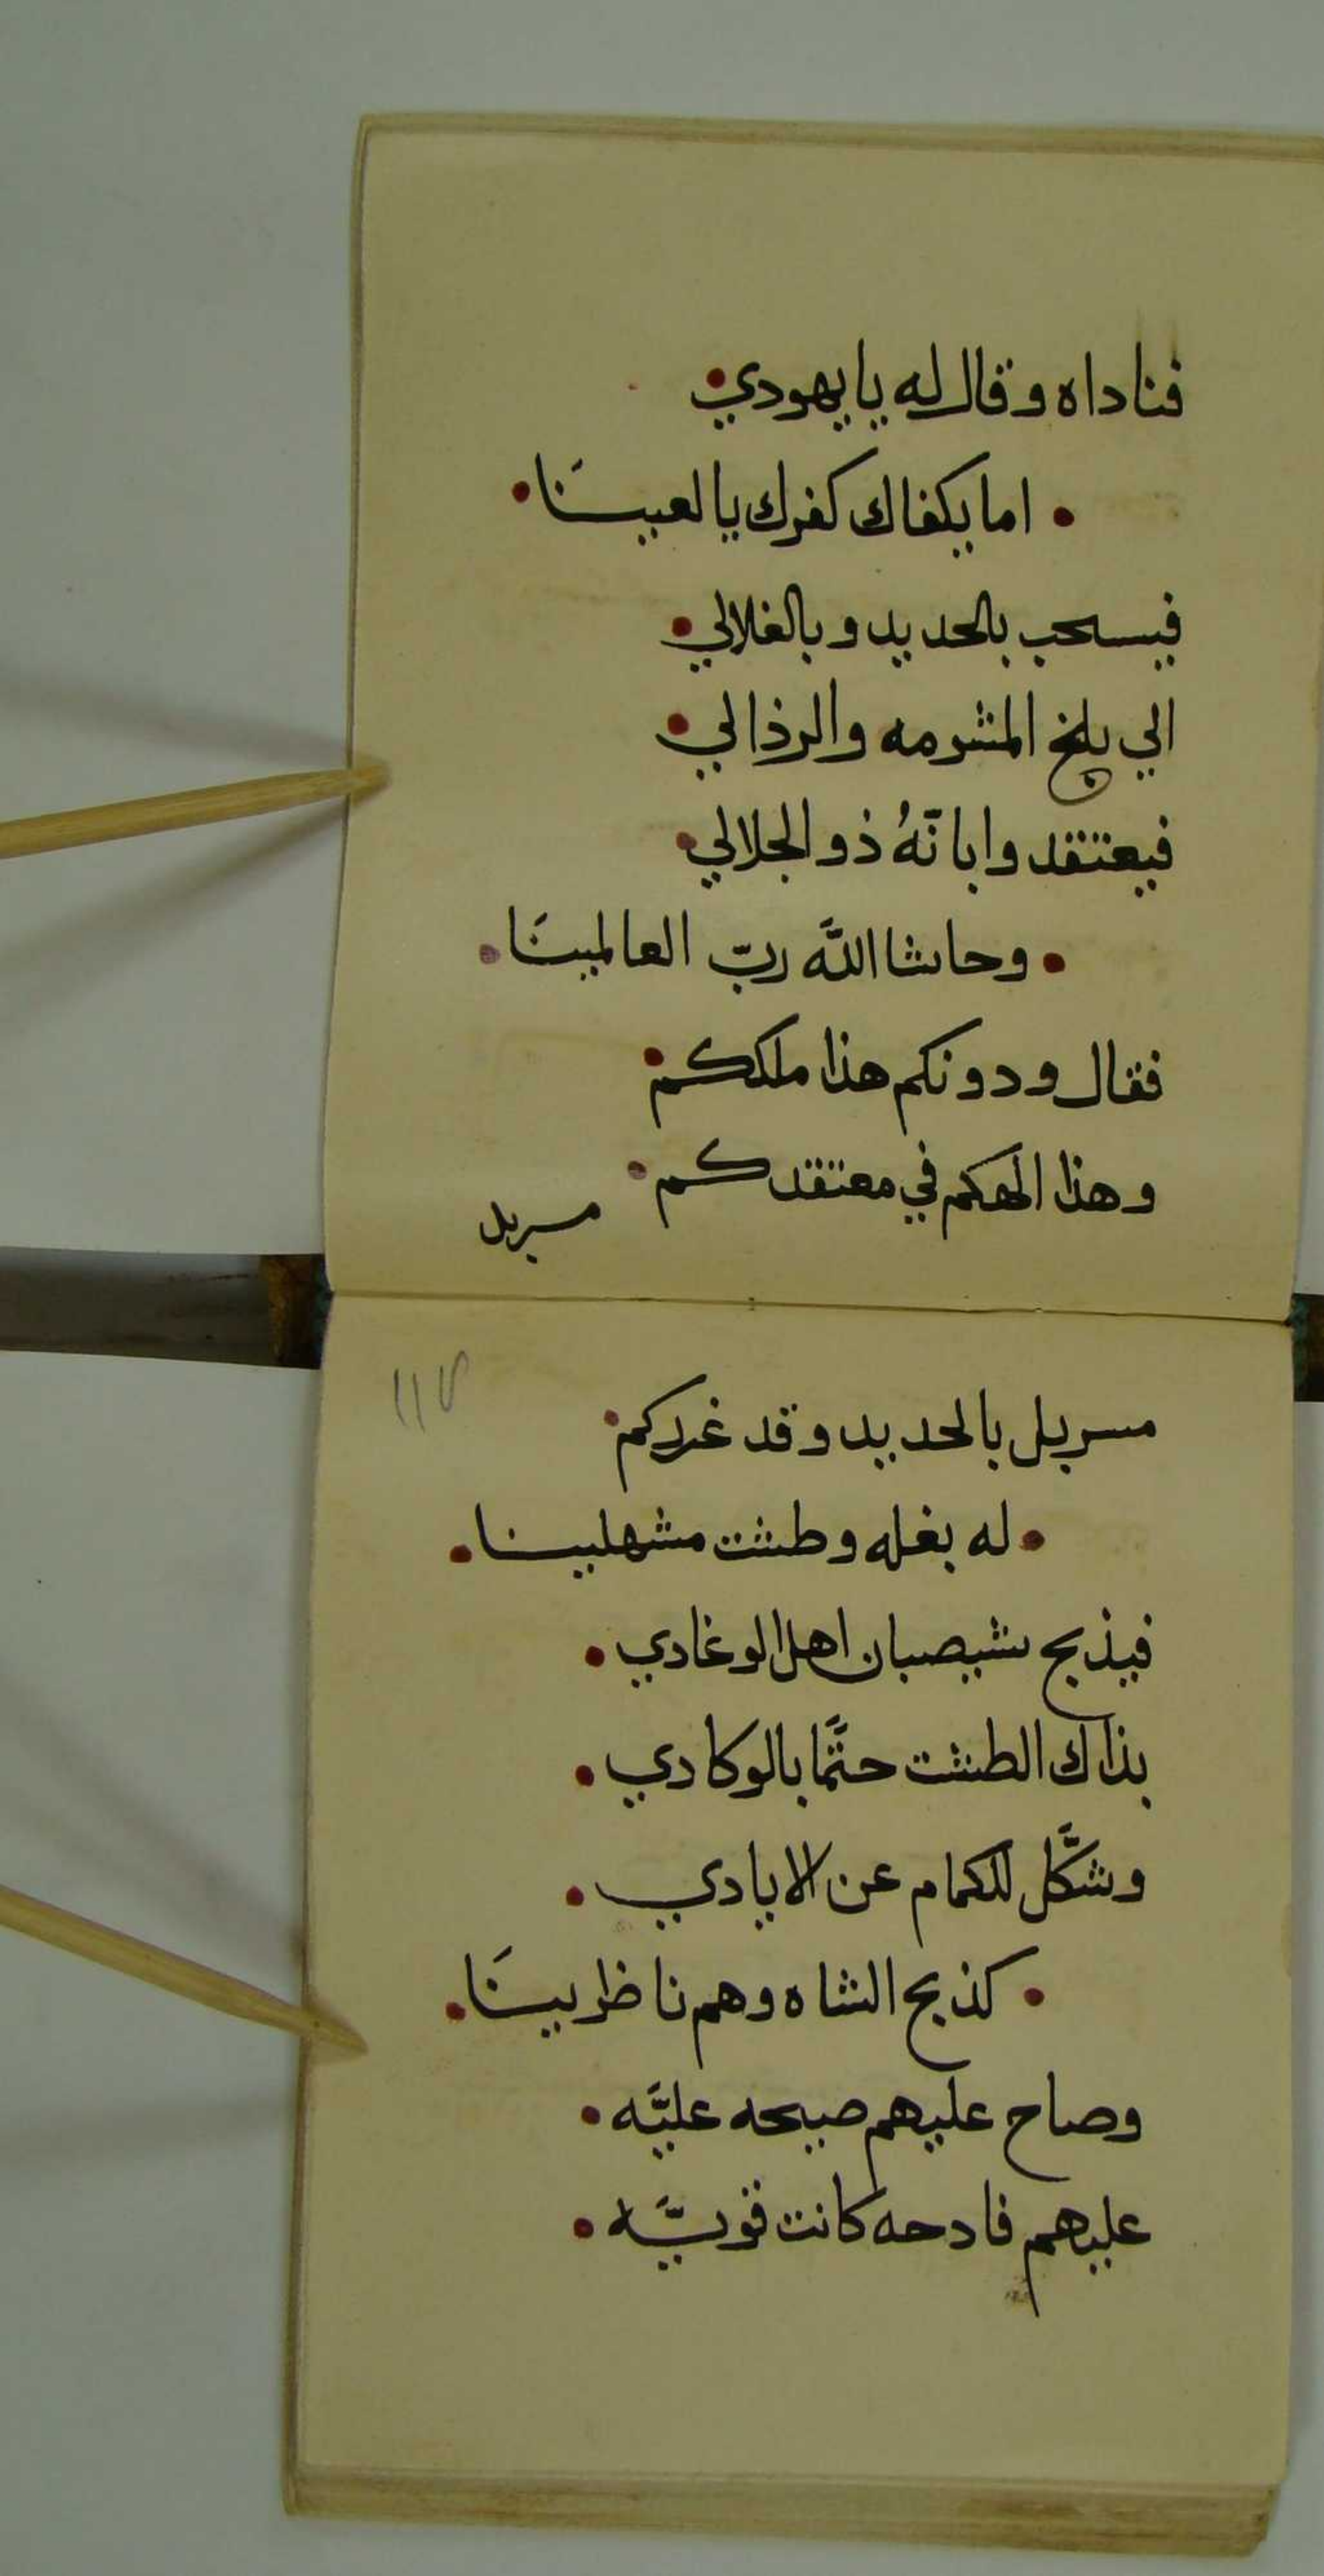 فناداه وقال له يا يهودي
اما يكفاك كفرك يا لعينَا
فيسحب بالحديد وبالغلالي
الي بلخ المشومه والرذالي
فيعتقد وابا نّهُ ذو الجلالي
وحاشا اللَّه ربّ العالمينَا
فقال ودونكم هذا ملككم
وهذا الهكم في معتقدكم
مسربل
١١٧
مسربل بالحديد وقد غرركم
له بغله وطشت مشهلينا
فيذبح شيصبان اهل الوغادي
بذاك الطشت حتَّما بالوكادي
وشكَّل للكمام عن الايادي
كذبح الشاه وهم ناظرينَا
وصاح عليهم صيحه عليَّه
عليهم فادحه كانت قويَّه